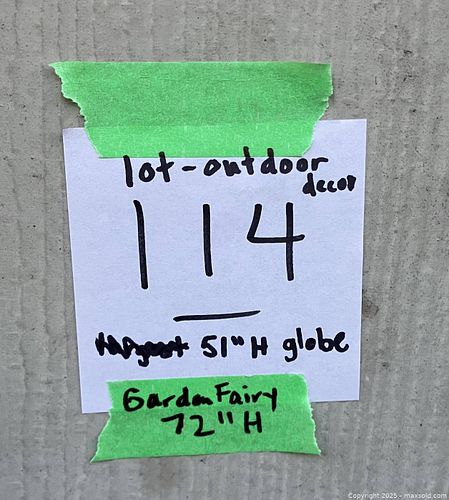 lot - outdoor
decor
114
51" H globe
Garden Fairy
72" H
Copyright 2025 - maxsold.com